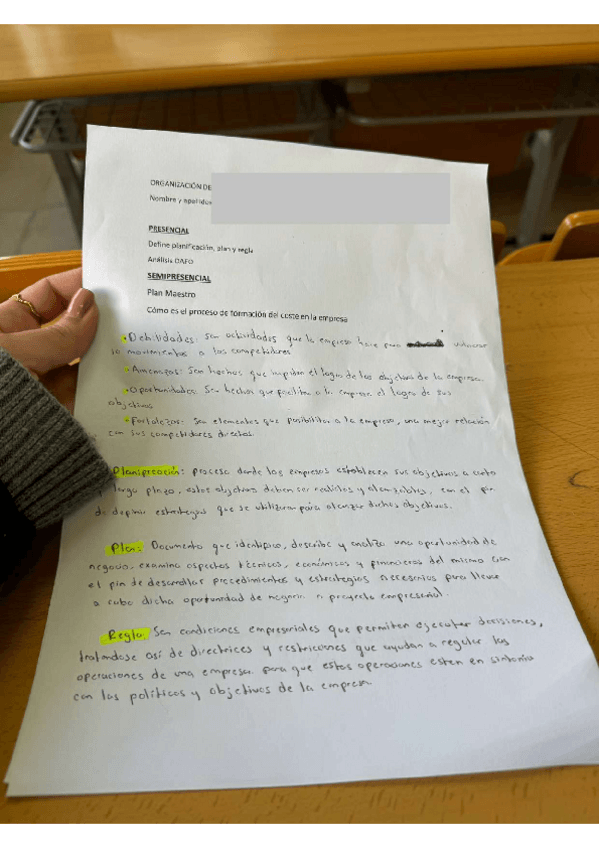 ORGANIZACIÓN DE
Nombre y apellidos
PRESENCIAL
Define planificación, plan y regla
Análisis DAFO
SEMIPRESENCIAL
Plan Maestro
Cómo es el proceso de formación del coste en la empresa
• Debilidades: Son actividades que la empresa hace para
o movimientos a los competidores
• Amenazas: Son hechos que impiden el logro de los objetivos de la empresa.
• Oportunidades: Son hechos que facilitan a la empresa el logro de sus
objetivos
• Fortalezas: Son elementos que posibilitan a la empresa, una mejor relación
con sus competidores directos.
Planificación: proceso donde las empresas establecen sus objetivos a corto
largo plazo, estos objetivos deben ser realistas y alcanzables, con el fin
de definir estrategias que se utilizan para alcanzar dichos objetivos.
Plan: Documento que identifica, describe y analiza una oportunidad de
negocio, examina aspectos técnicos, económicos y financieros del mismo con
el fin de desarrollar procedimientos y estrategias necesarios para llevar
a cabo dicha oportunidad de negocio proyecto empresarial.
Regla: Son condiciones empresariales que permiten ejecutar decisiones,
tratándose así de directrices y restricciones que ayudan a regular las
operaciones de una empresa para que estas operaciones estén en sintonía
con las políticas y objetivos de la empresa.